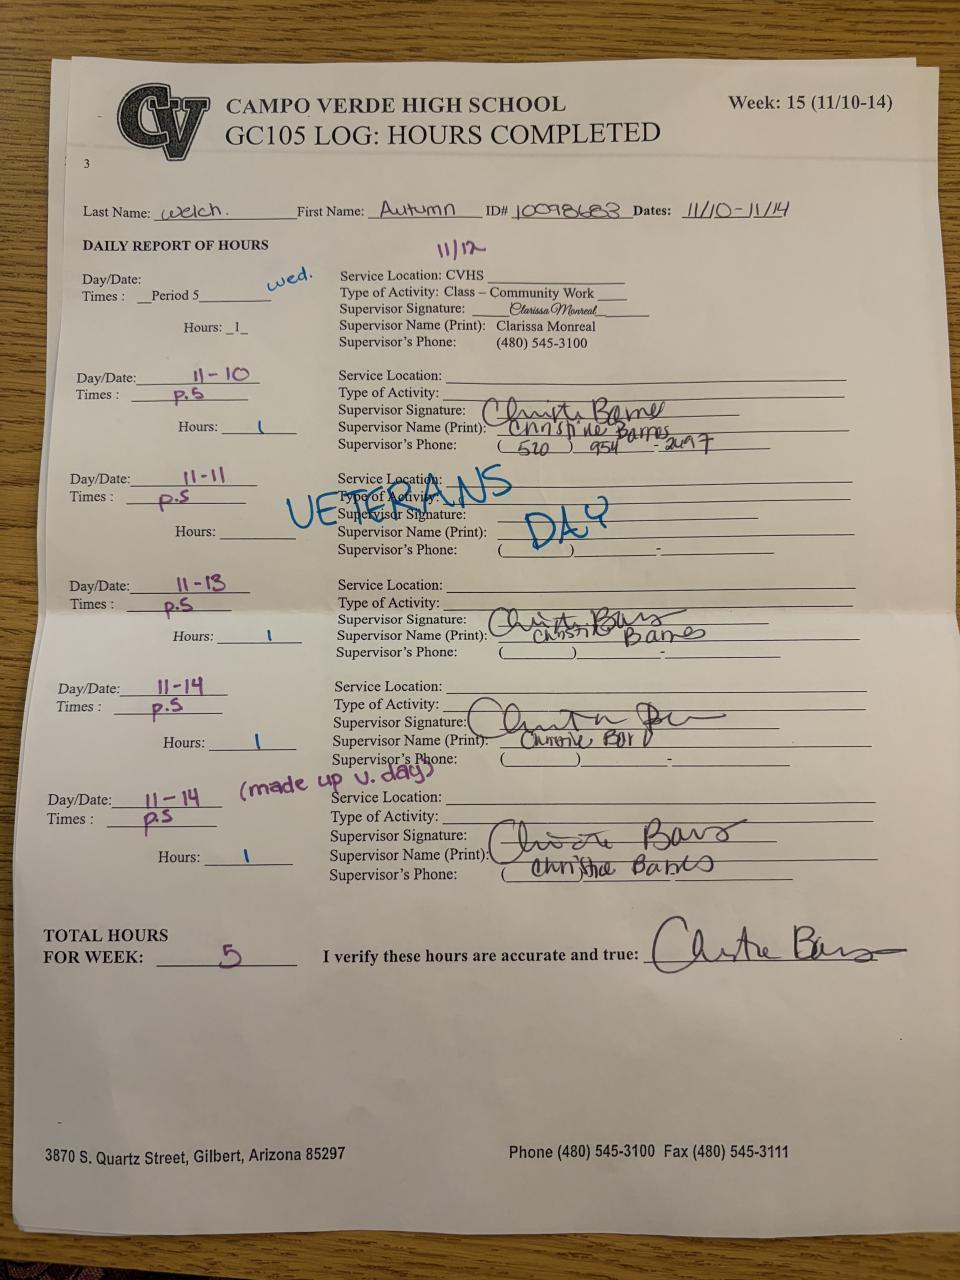 CV
CAMPO VERDE HIGH SCHOOL
Week: 15 (11/10-14)
GC105 LOG: HOURS COMPLETED
3
Last Name: Welch. First Name: Autumn ID# 10098683 Dates: 11/10-11/14
DAILY REPORT OF HOURS
11/12
Day/Date: wed.
Times : Period 5
Hours: 1
Service Location: CVHS
Type of Activity: Class – Community Work
Supervisor Signature: Clarissa Monreal
Supervisor Name (Print): Clarissa Monreal
Supervisor's Phone: (480) 545-3100
Day/Date: 11-10
Times : p.5
Hours: 1
Service Location:
Type of Activity:
Supervisor Signature: Christine Barnes
Supervisor Name (Print): Christine Barnes
Supervisor's Phone: (520) 954-2497
Day/Date: 11-11
Times : p.5
Hours:
VETERANS DAY
Service Location:
Type of Activity:
Supervisor Signature:
Supervisor Name (Print):
Supervisor's Phone: ( ) -
Day/Date: 11-13
Times : p.5
Hours: 1
Service Location:
Type of Activity:
Supervisor Signature:
Supervisor Name (Print): Christine Barnes
Supervisor's Phone: ( ) -
Day/Date: 11-14
Times : p.5
Hours: 1
Service Location:
Type of Activity:
Supervisor Signature:
Supervisor Name (Print):
Supervisor's Phone: ( ) -
(made up v. day)
Day/Date: 11-14
Times : p.5
Hours: 1
Service Location:
Type of Activity:
Supervisor Signature:
Supervisor Name (Print): Christine Barnes
Supervisor's Phone: (
TOTAL HOURS
FOR WEEK: 5 I verify these hours are accurate and true:
3870 S. Quartz Street, Gilbert, Arizona 85297
Phone (480) 545-3100 Fax (480) 545-3111